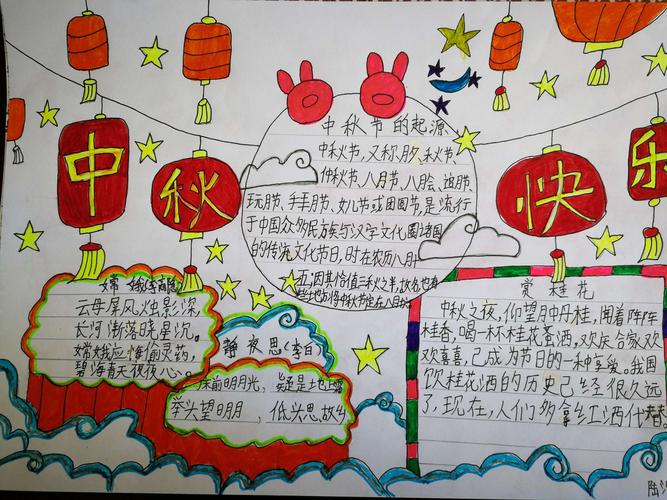 中
秋
快
乐
中秋节的起源
中秋节，又称月夕，秋节
仲秋节、八月节、八月会、追月节
玩月节、女儿节或团圆节，是流行
于中国众多民族与汉字文化圈诸国
的传统文化节日，时在农历八月十
五；因其恰值三秋之半，故名，也有
些地方将中秋节定在八月十六
嫦娥（李商隐）
云母屏风烛影深，
长河渐落晓星沉。
嫦娥应悔偷灵药，
碧海青天夜夜心。
静夜思（李白）
床前明月光，疑是地上霜
举头望明月，低头思故乡
赏桂花
中秋之夜，仰望月中丹桂，闻着阵阵
桂香，喝一杯桂花蜜酒，欢庆合家欢
欢喜喜，已成为节日的一种享爱。我国
饮桂花酒的历史已经很久远
了，现在，人们多拿红酒代替。
陆